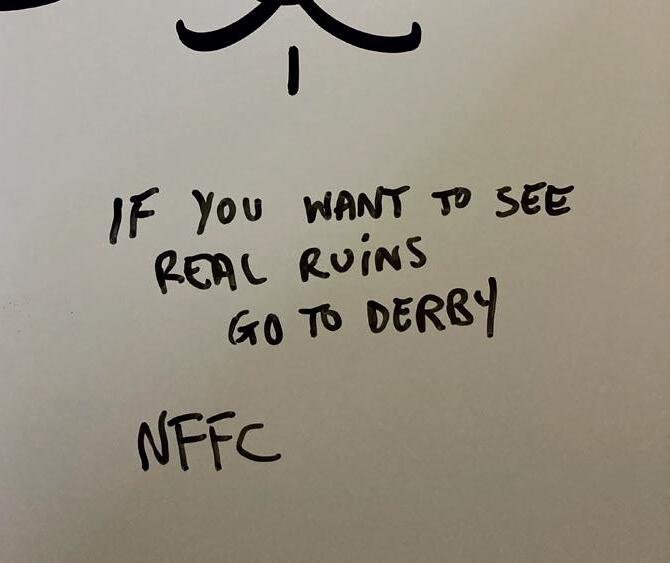 IF YOU WANT TO SEE
REAL RUiNS
GO TO DERBY
NFFC